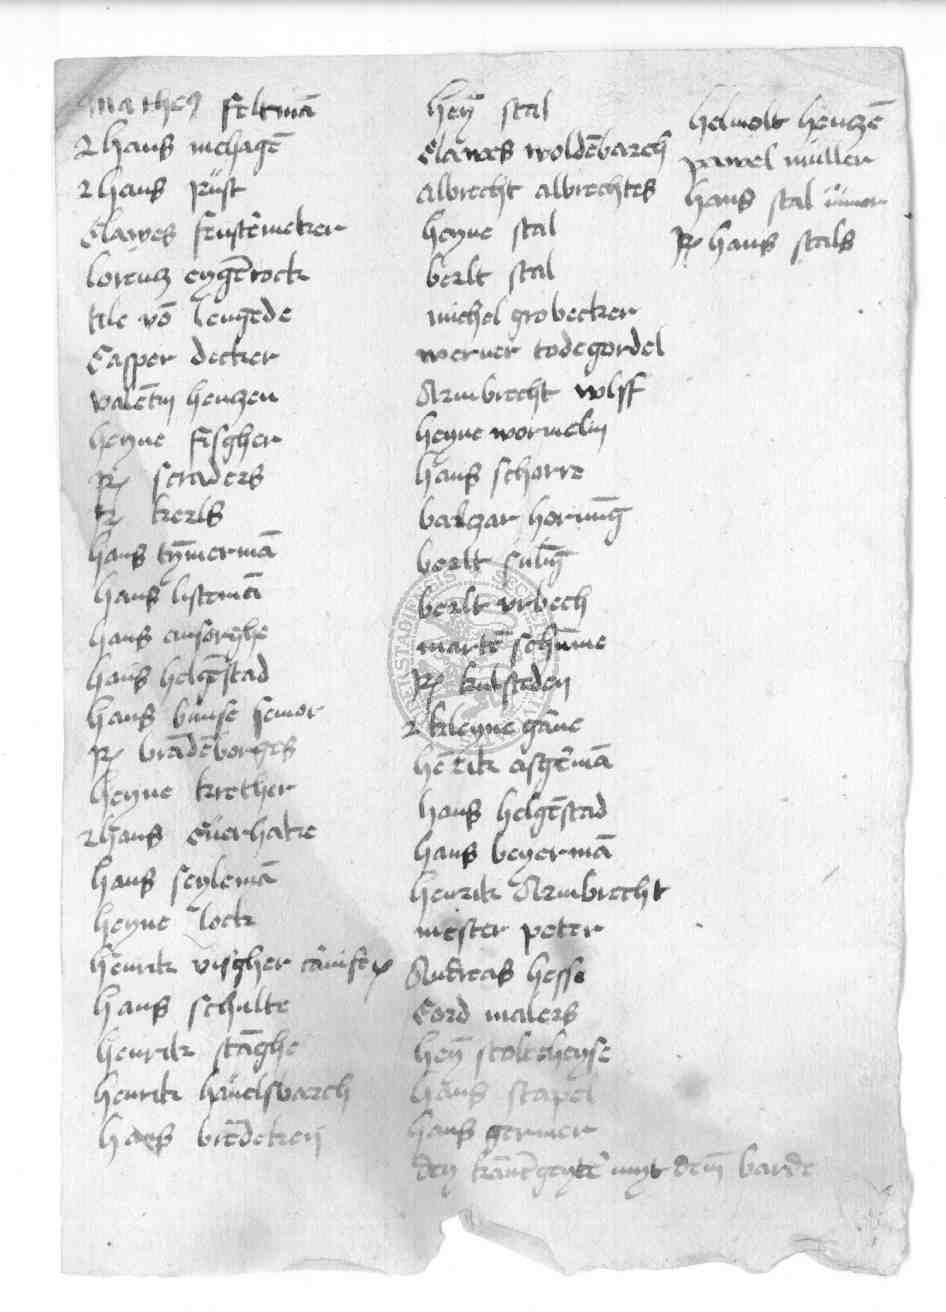 Matheus feltmā
2 hans melsagē
2 hans rüst
Clawes fenstermeker
lorencz eygērock
tile vō lengede
Casper decker
valētin henczen
heyne fisgher
R scraders
R kerls
hans tymmermā
hans listemā
hans ansorghe
hans helgēstad
hans bünse senior
R brādēborges
heyne krether
2 hans euerhake
hans seylemā
heyne lock
henrik visgher
hans schulte
henrik stāghe
henrik hauelsbarch
hans brēdeken
heȳ stal
Clawes woldēbarch
albrecht albrechtes
heyne stal
berlt stal
michel grobecker
werner todegordel
Armbrecht wlff
heyne wormelin
hans schorre
balczar hornīg
berlt sulīg
berlt vrbech
martē schūme
R kulsteden
2 kleyne gāne
henrik asgemā
hans helgēstad
hans beyermā
henrik Armbrecht
mester peter
Andreas hesse
Cord malers
heȳ stolteheyse
hans stapel
hans germer
den myt dem barde
helmolt henczē
pawel müller
hans stal iunior
R hans stals